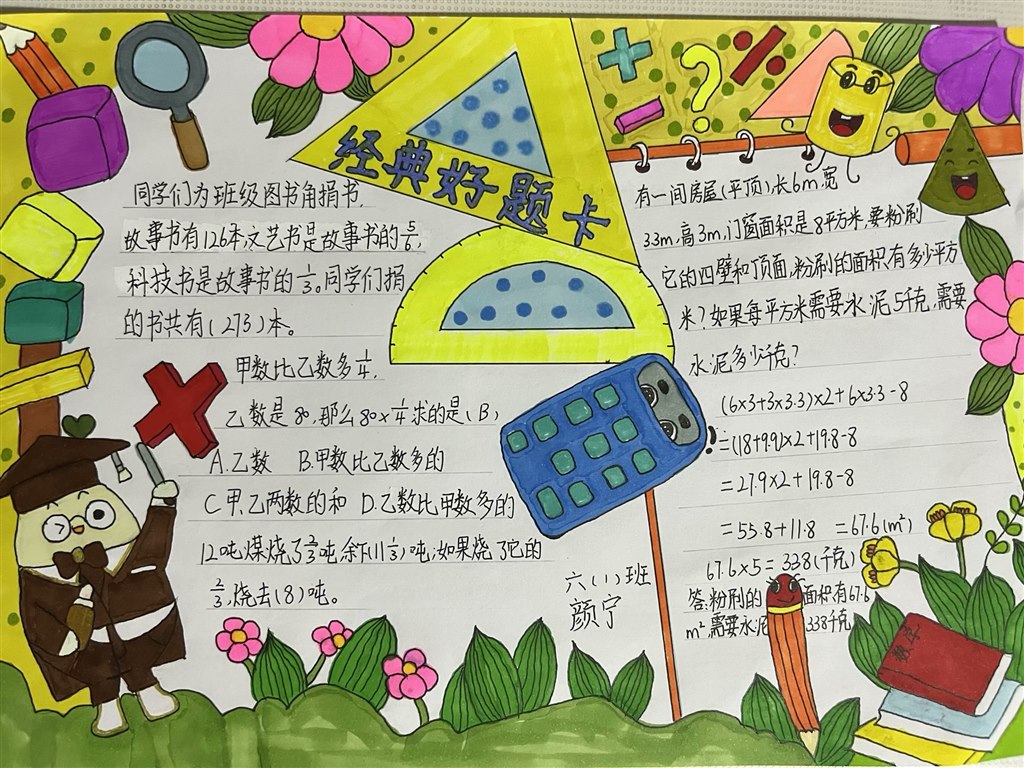 经典好题卡
同学们为班级图书角捐书,
故事书有126本,文艺书是故事书的5/6,
科技书是故事书的1/3。同学们捐
的书共有(273)本。
甲数比乙数多1/4,
乙数是80,那么80×1/4求的是(B)
A.乙数 B.甲数比乙数多的
C甲、乙两数的和 D.乙数比甲数多的
12吨煤烧了2/3吨,余下(11 1/3)吨;如果烧了它的
2/3,烧去(8)吨。
六(1)班
颜宁
有一间房屋(平顶)长6m,宽
3.3m,高3m,门窗面积是8平方米,要粉刷
它的四壁和顶面,粉刷的面积有多少平方
米?如果每平方米需要水泥5千克,需要
水泥多少千克?
(6×3+3×3.3)×2+6×3.3-8
=(18+9.9)×2+19.8-8
=27.9×2+19.8-8
=55.8+11.8 =67.6(m²)
67.6×5=338(千克)
答:粉刷的面积有67.6
m²,需要水泥338千克
数学